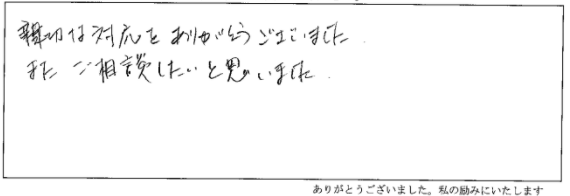 親切な対応をありがとうございました.
また ご相談したいと思いました.
ありがとうございました。私の励みにいたします